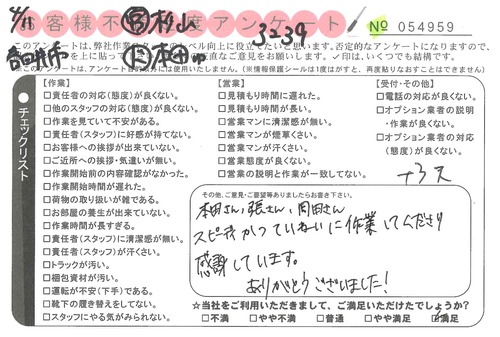 4/11
お客様不満足度アンケート
3239
№ 054959
このアンケートは、弊社作業の
レベル向上に役立てたいと思います。否定的なアンケートになりますので、
直しなご意見をお願いします。✓印は、いくつでも結構です。
※このアンケートは
以外には使用いたしません。(※情報保護シールは1度はがすと、再度貼りなおすことはできません)
チェックリスト
【作業】
□責任者の対応(態度)が良くない。
□他のスタッフの対応(態度)が良くない。
□作業を見ていて不安がある。
□責任者(スタッフ)に好感が持てない。
□お客様への挨拶が出来ていない。
□ご近所への挨拶・気遣いが無い。
□作業開始前の内容確認がなかった。
□作業開始時間が遅れた。
□荷物の取り扱いが雑である。
□お部屋の養生が出来ていない。
□作業時間が長すぎる。
□責任者(スタッフ)に清潔感が無い。
□責任者(スタッフ)が汗くさい。
□トラックが汚い。
□梱包資材が汚い。
□運転が不安(下手)である。
□靴下の履き替えをしてない。
□スタッフにやる気がみられない。
【営業】
□見積もり時間に遅れた。
□見積もり時間が長い。
□営業マンに清潔感が無い。
□営業マンが煙草くさい。
□営業マンが汗くさい。
□営業態度が良くない。
□営業の説明と作業が一致してない。
【受付・その他】
□電話の対応が良くない。
□オプション業者の説明
・作業が良くない。
□オプション業者の対応
(態度)が良くない。
その他、ご意見・ご要望等ありましたらお書き下さい。
本田さん、張さん、岡田さん
スピーディかつていねいに作業してくださり
感謝しています。
ありがとうございました!
☆当社をご利用いただきまして、ご満足いただけたでしょうか?
□不満 □やや不満 □普通 □やや満足 ☑満足